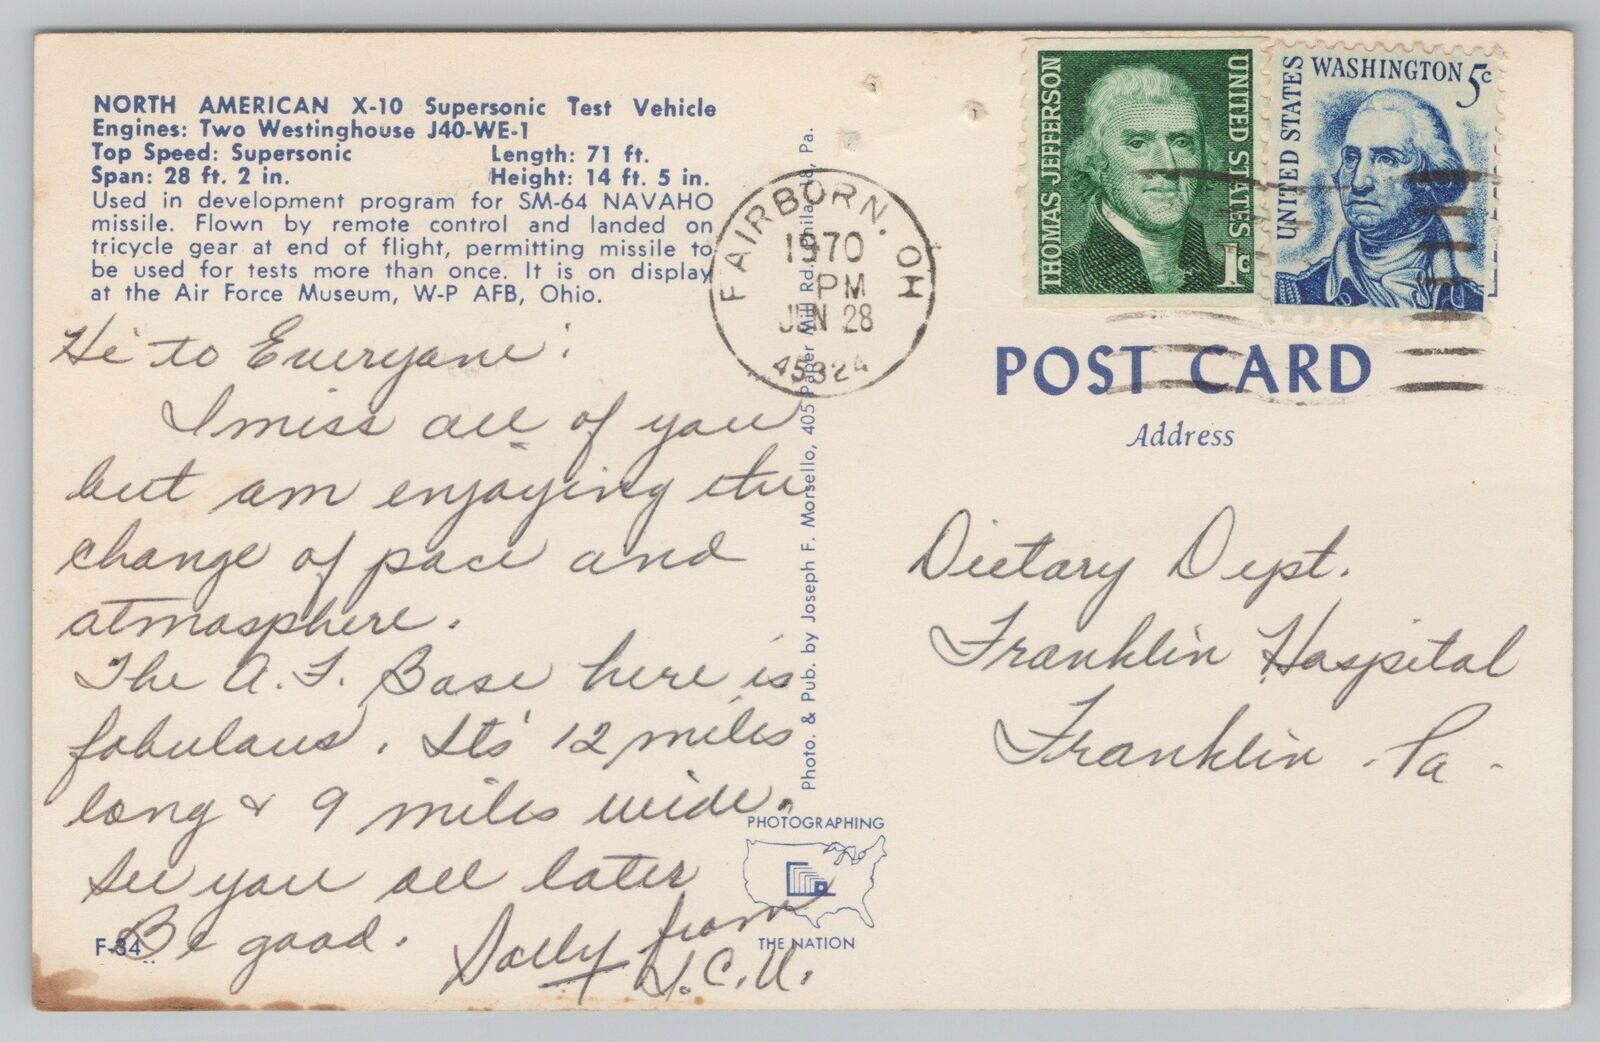 NORTH AMERICAN X-10 Supersonic Test Vehicle
Engines: Two Westinghouse J40-WE-1
Top Speed: Supersonic Length: 71 ft.
Span: 28 ft. 2 in. Height: 14 ft. 5 in.
Used in development program for SM-64 NAVAHO
missile. Flown by remote control and landed on
tricycle gear at end of flight, permitting missile to
be used for tests more than once. It is on display
at the Air Force Museum, W-P AFB, Ohio.
Hi to Everyone:
I miss all of you
but am enjoying the
change of pace and
atmosphere.
The A.F. Base here is
fabulous. It's 12 miles
long & 9 miles wide.
See you all later
Be good.
F-34
Dolly from
I.C.U.
Photo. & Pub. by Joseph F. Morsello, 405 Paper Mill Rd. Phila., Pa.
PHOTOGRAPHING
THE NATION
FAIRBORN, OH
1970
PM
JUN 28
45324
THOMAS JEFFERSON
UNITED STATES
1c
UNITED STATES
WASHINGTON 5c
POST CARD
Address
Dietary Dept.
Franklin Hospital
Franklin - Pa -